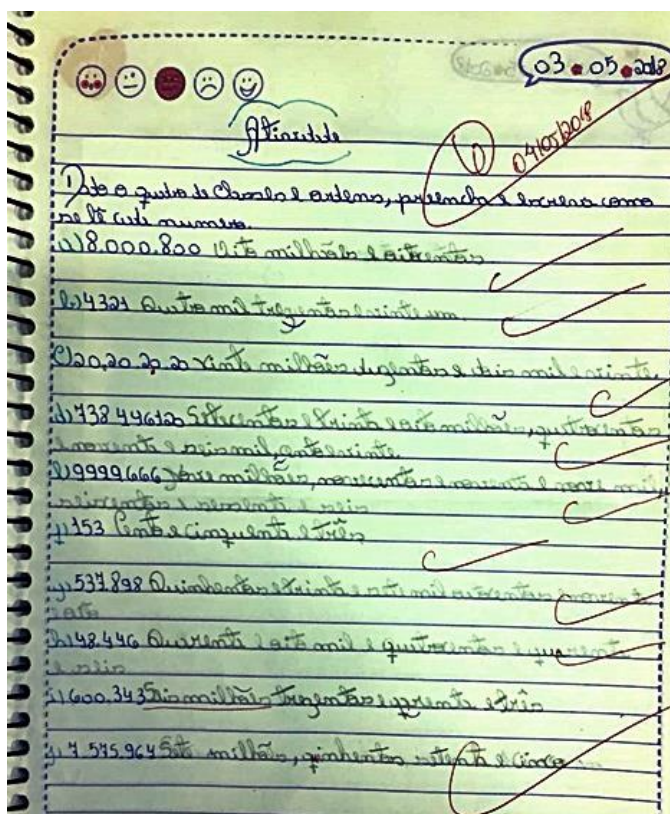 03.05.2018
04/05/2018
Atividade
1) Data o quadro de classes e ordens, preencha e escreva como
se lê cada numero.
a) 8.000.800 Oito milhões e oitocentos.
b) 4321 Quatro mil trezentos e vinte um.
c) 20.20.20.20 Vinte milhões duzentos e dois mil e vinte.
d) 738 496120 Setecentos e trinta e oito milhões, quatrocentos
e noventa e seis mil, cento e vinte.
e) 9999666 Nove milhões, novecentos e noventa e nove mil
seiscentos e sessenta e seis
f) 153 Cento e cinquenta e três
g) 537.898 Quinhentos e trinta e sete mil oitocentos e novent
oito
h) 48.446 Quarenta e oito mil e quatrocentos e quarenta
e seis
i) 600.343 Seis milhões trezentos e qrenta e três
j) 7.575.964 Sete milhões, qinhentos setenta e cinco